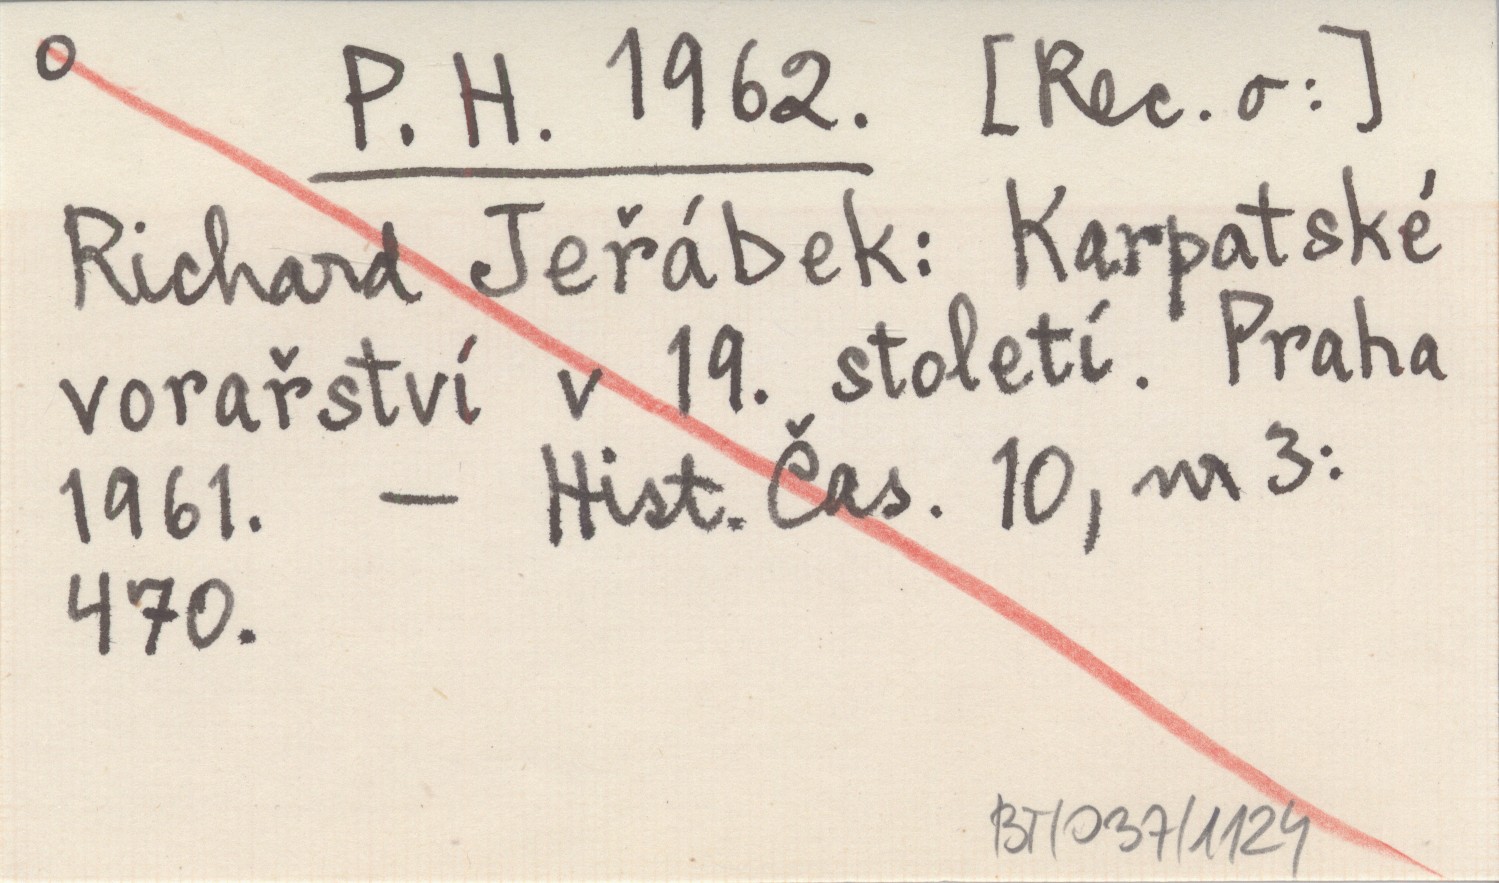 o P. H. 1962. [Rec. o:]
Richard Jeřábek: Karpatské
vorařství v 19. století. Praha
1961. — Hist. Čas. 10, nr 3:
470.
BT/037/1124